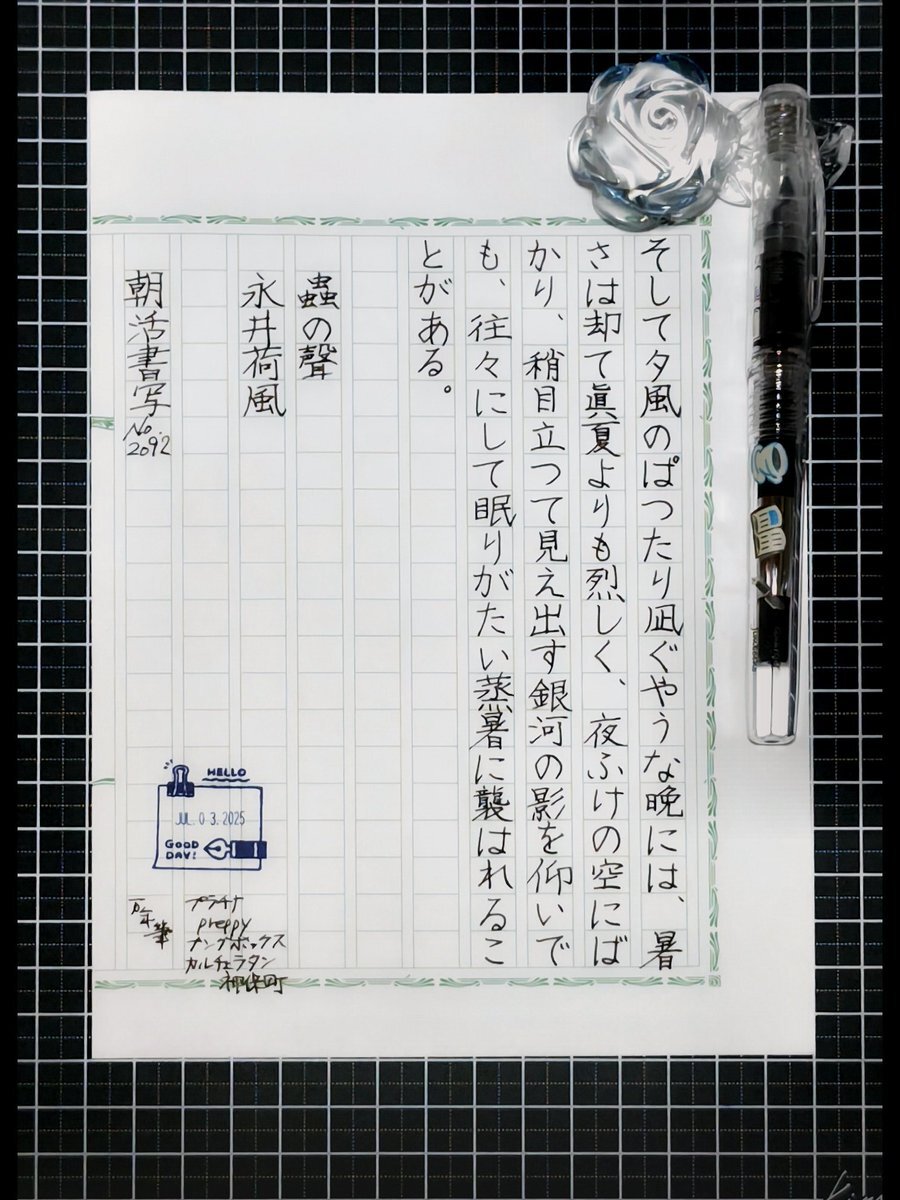 そして夕風のぱつたり凪ぐやうな晩には、暑
さは却て眞夏よりも烈しく、夜ふけの空にば
かり、稍目立つて見え出す銀河の影を仰いで
も、往々にして眠りがたい蒸暑に襲はれるこ
とがある。
蟲の聲
永井荷風
朝活書写
No.
2092
HELLO
JUL. 03. 2025
GOOD
DAY!
プラチナ
preppy
ナガサボックス
カルチェラタン
神保町
万年筆